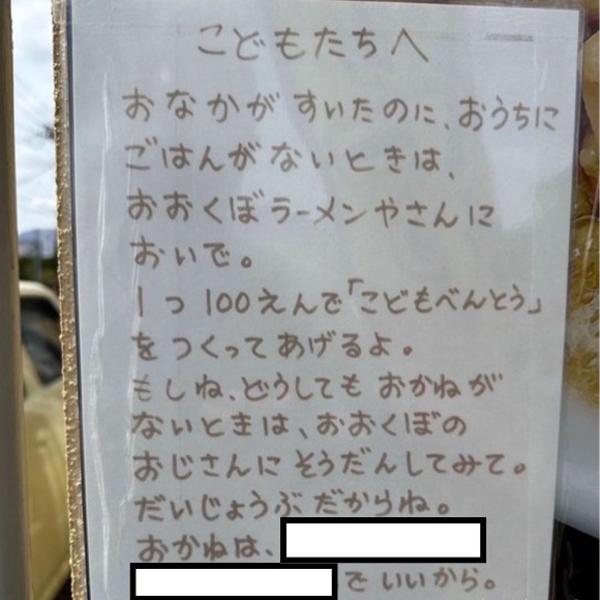 こどもたちへ
おなかが すいたのに、おうちに
ごはんがないときは、
おおくぼラーメンやさんに
おいで。
1つ 100えんで「こどもべんとう」
をつくってあげるよ。
もしね、どうしても おかねが
ないときは、おおくぼの
おじさんに そうだんしてみて。
だいじょうぶ だからね。
おかねは、
で いいから。